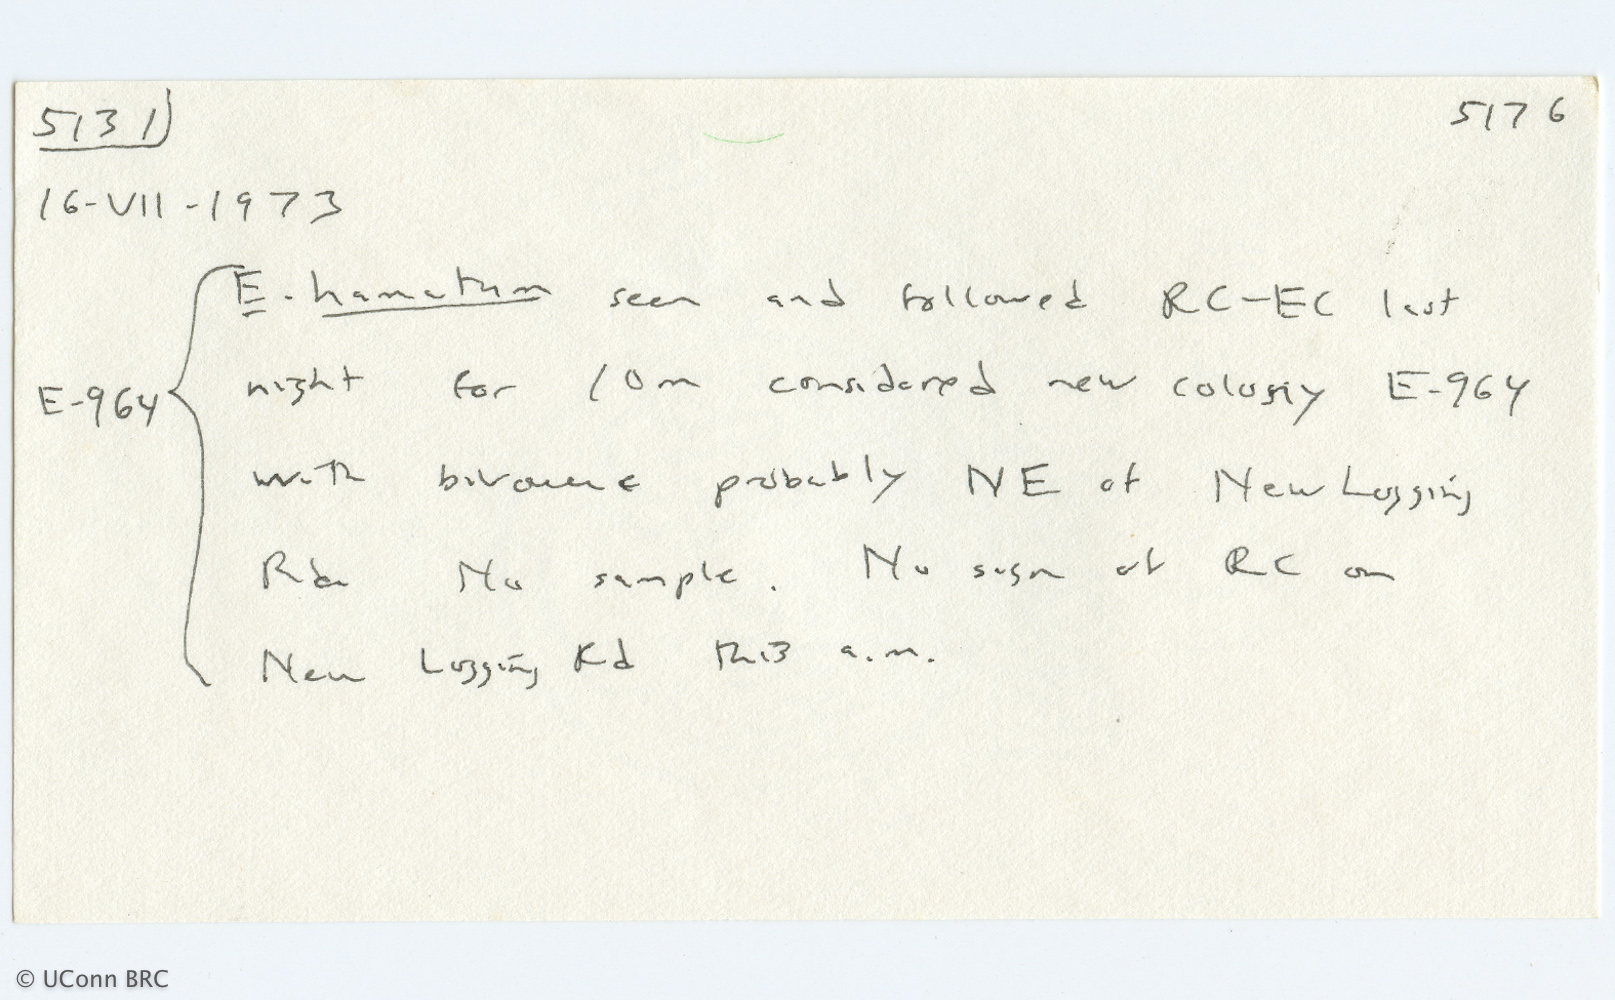 5131) 5176
16-VII-1973
E. hamatum seen and followed RC-EC last
E-964 night for 10m considered new colony E-964
with bivouac probably NE of New Logging
Rd. No sample. No sign of RC on
New Logging Rd this a.m.
© UConn BRC